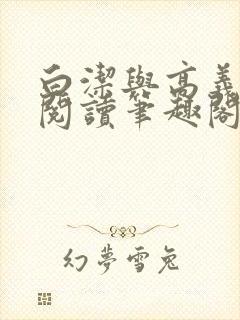 白潔與高義
閱讀筆趣閣
幻夢雪兔